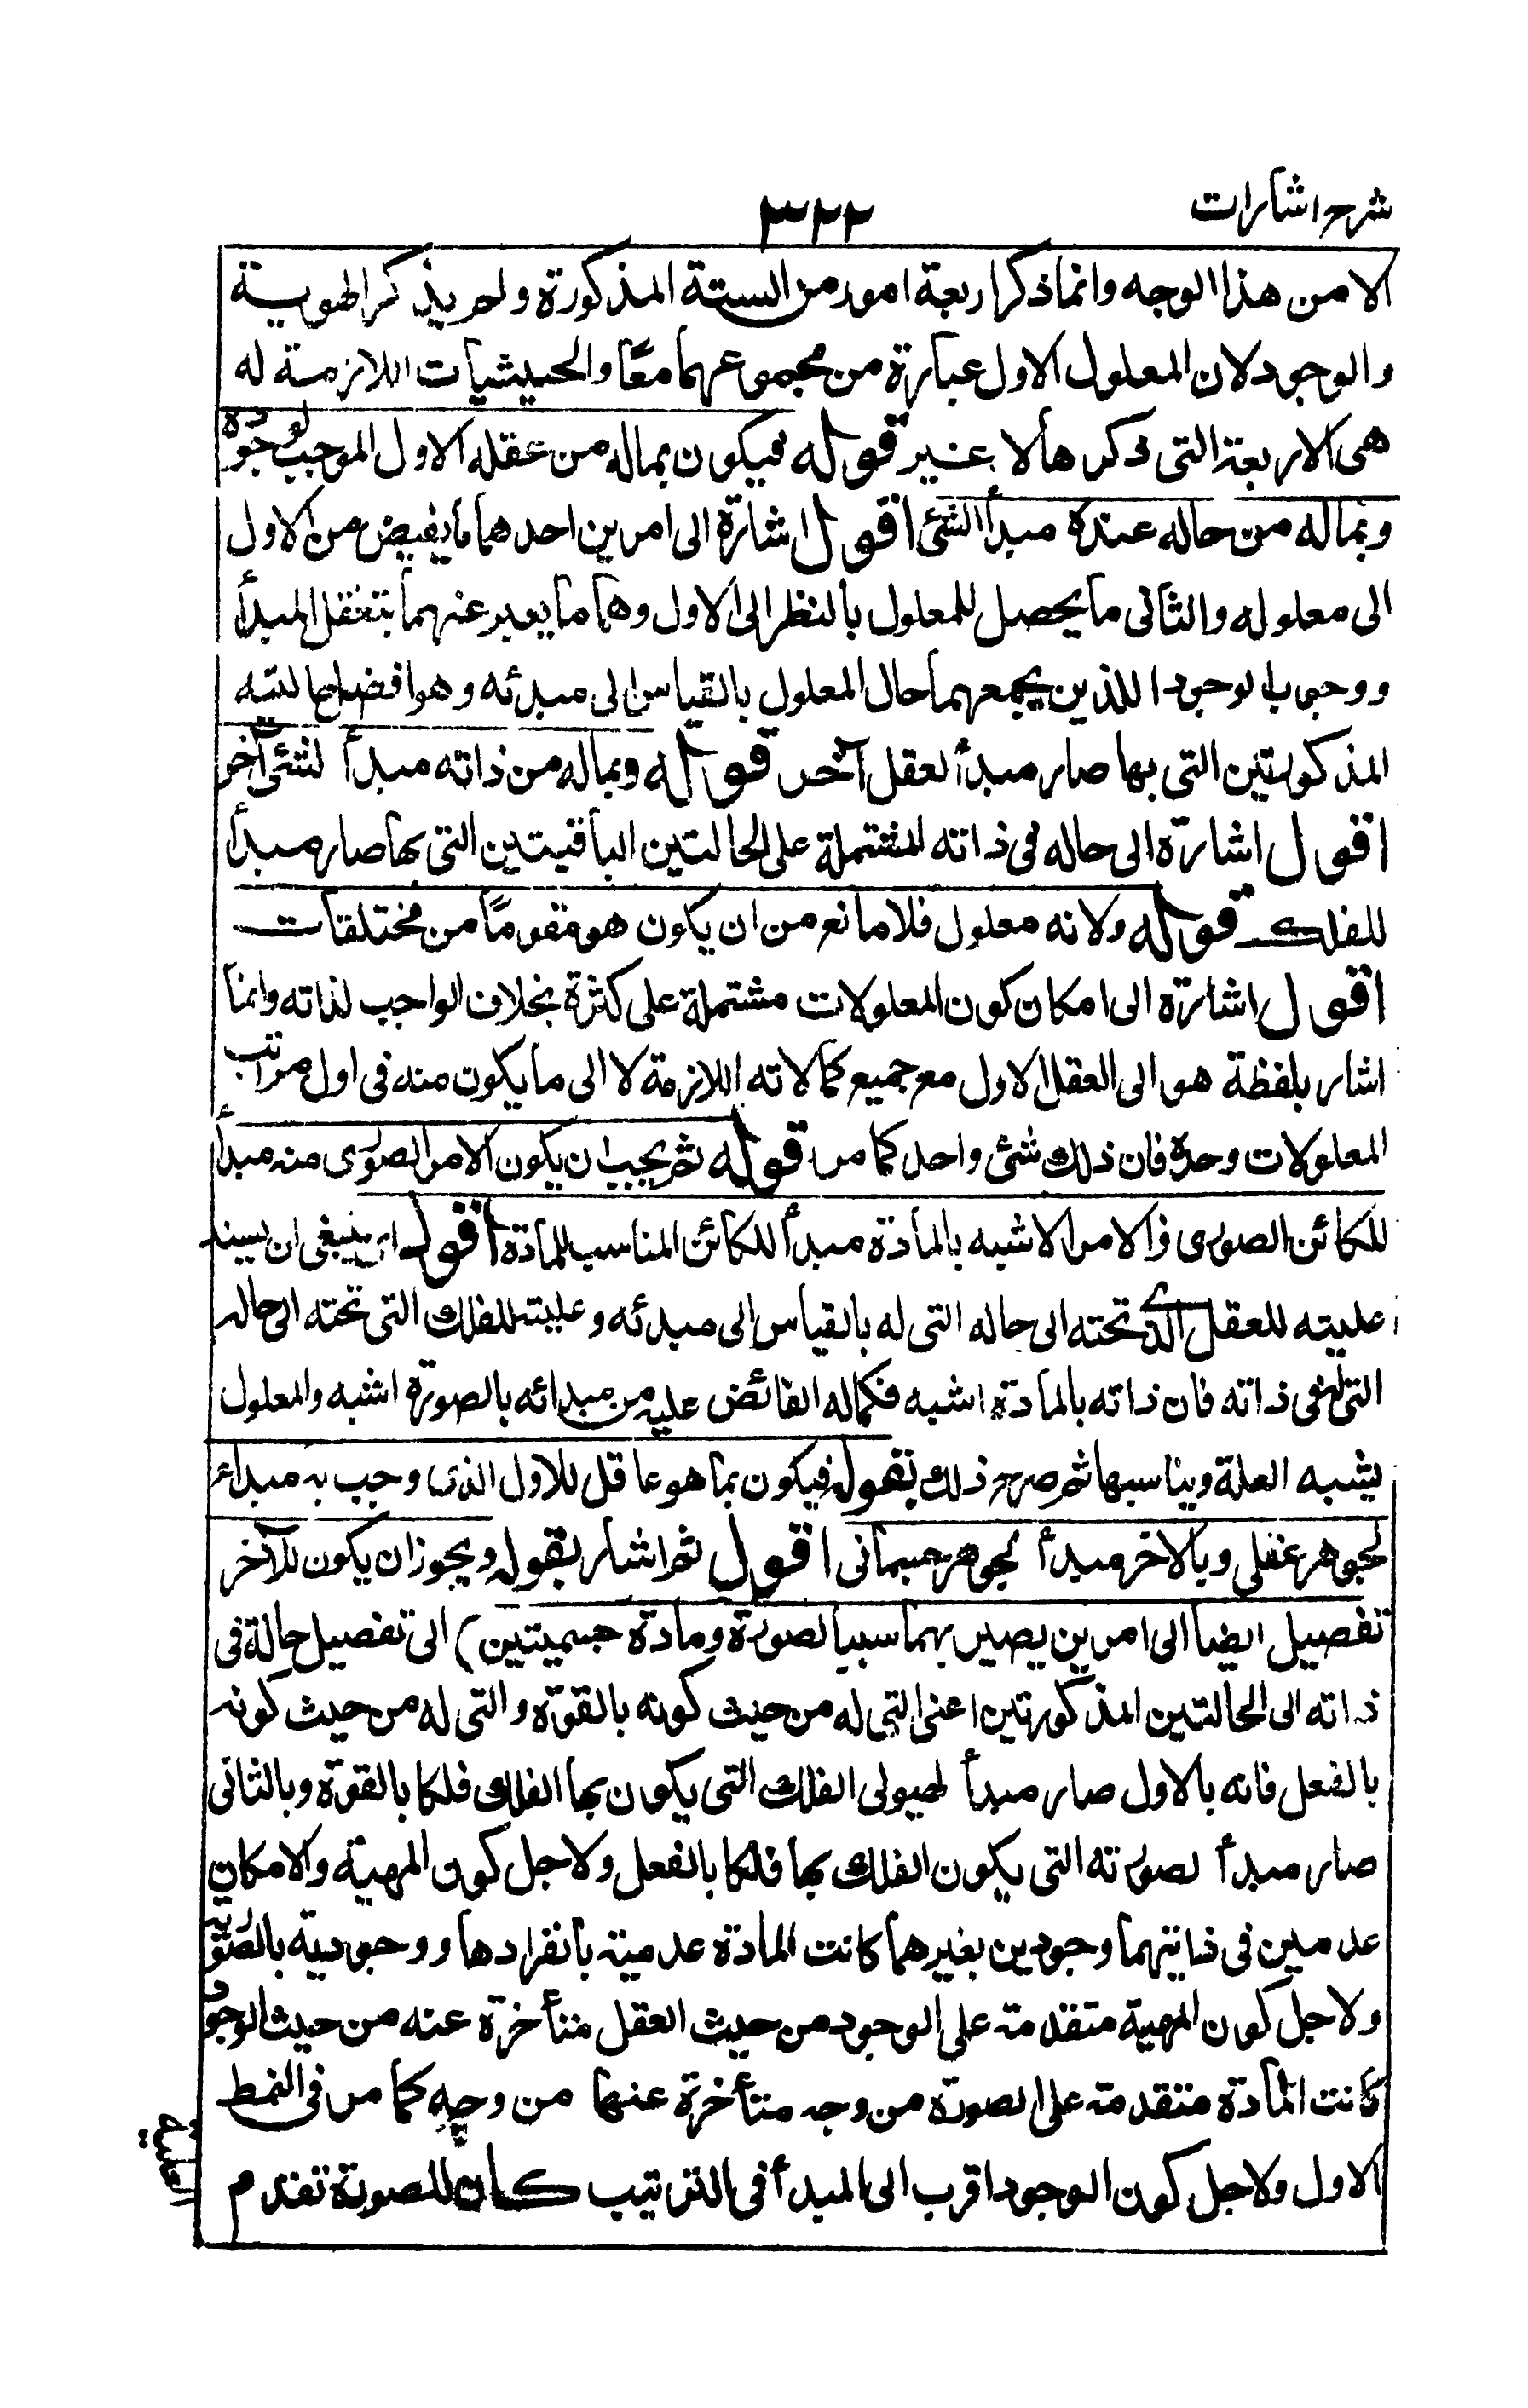 شرح اشارات
٣٢٢
الا من هذا الوجه وانما ذكر اربعة امور من الستة المذكورة ولم يذكر الهوية
والوجود لان المعلول الاول عبارة من مجموعهما معًا والحيثيات اللازمة له
هى الاربعة التى ذكرها لا غير قوله فيكون بماله من عقله الاول الموجب لوجوده
وبماله من حاله عنده مبدأ الشئ اقول اشارة الى امرين احدهما ما يفيض من الاول
الى معلوله والثانى ما يحصل للمعلول بالنظر الى الاول وهما ما يعبر عنهما بتعقل المبدأ
ووجوب الوجود اللذين يجمعهما حال المعلول بالقياس الى مبدئه وهو افضل حالتيه
المذكورتين التى بها صار مبدأ لعقل آخر قوله وبماله من ذاته مبدأ لشئ آخر
اقول اشارة الى حاله فى ذاته المشتملة على الحالتين الباقيتين التى بها صار مبدأ
للفلك قوله ولانه معلول فلا مانع من ان يكون هو مقومًا من مختلفات
اقول اشارة الى امكان كون المعلولات مشتملة على كثرة بخلاف الواجب لذاته وانما
اشار بلفظة هو الى العقل الاول مع جميع كمالاته اللازمة لا الى ما يكون منه فى اول مراتب
المعلولات وحده فان ذلك شئ واحد كما مر قوله ثم يجب ان يكون الامر الصورى منه مبدأ
للكائن الصورى والامر الاشبه بالمادة مبدأ للكائن المناسب للمادة اقول اى ينبغى ان يسند
عليته للعقل الذى تحته الى حاله التى له بالقياس الى مبدئه وعليته للفلك التى تحته الى حاله
التى له فى ذاته فان ذاته بالمادة اشبه فكماله الفائض عليه من مبدائه بالصورة اشبه والمعلول
يشبه العلة ويناسبها ثم صرح ذلك بقوله فيكون بما هو عاقل للاول الذى وجب به مبداء
لجوهر عقلى وبالاخر مبدأ لجوهر جسمانى اقول ثم اشار بقوله ويجوز ان يكون للآخر
تفصيل ايضا الى امرين يصير بهما سببا لصورة ومادة جسميتين) الى تفصيل حالة فى
ذاته الى الحالتين المذكورتين اعنى التى له من حيث كونه بالقوة والتى له من حيث كونه
بالفعل فانه بالاول صار مبدأ لهيولى الفلك التى يكون بها الفلك فلكا بالقوة وبالثانى
صار مبدأ لصورته التى يكون الفلك بها فلكا بالفعل ولاجل كون المهية والامكان
عدميين فى ذاتيهما وجوديين بغيرهما كانت المادة عدمية بانفرادها ووجودية بالصورة
ولاجل كون المهية متقدمة على الوجود من حيث العقل متأخرة عنه من حيث الوجود
كانت المادة متقدمة على الصورة من وجه متأخرة عنها من وجه كما مر فى النمط
الاول ولاجل كون الوجود اقرب الى المبدأ فى الترتيب كان للصورة تقدم